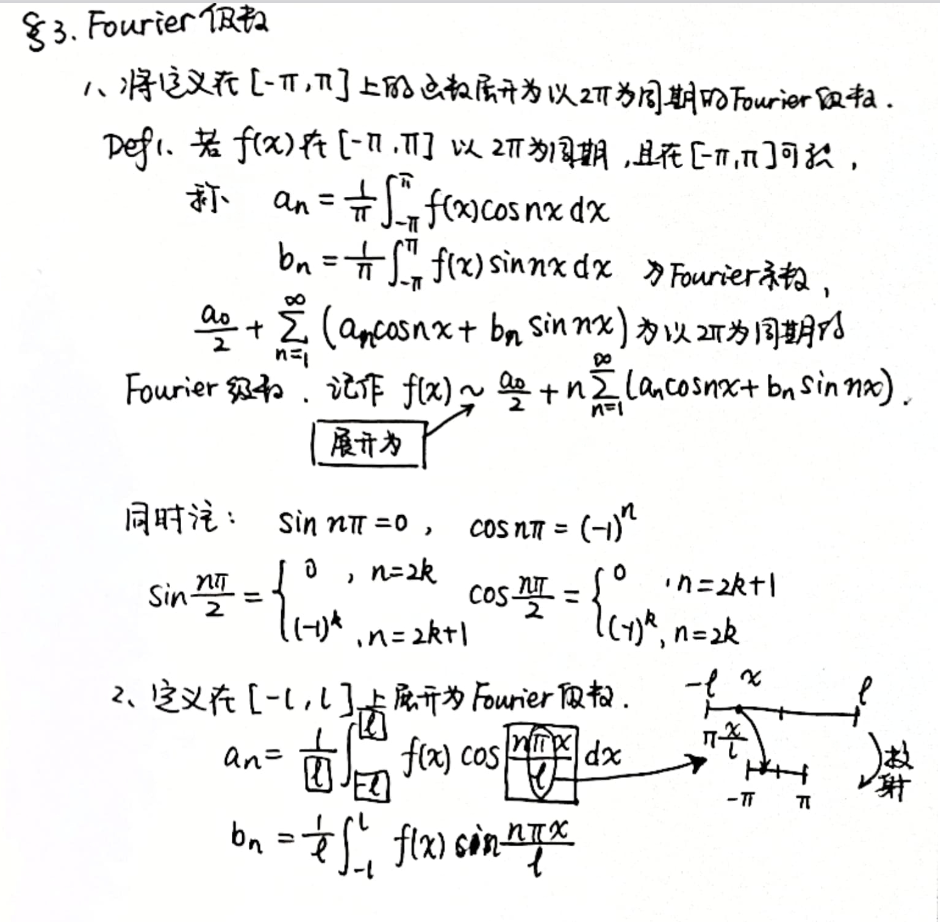 §3. Fourier 级数
1、将定义在 [-π,π] 上的函数展开为以2π为周期的Fourier级数.
Def1. 若 f(x) 在 [-π,π] 以 2π为周期,且在 [-π,π]可积,
称 aₙ = 1/π ∫_{-π}^{π} f(x)cosnx dx
bₙ = 1/π ∫_{-π}^{π} f(x) sinnx dx 为Fourier系数,
a₀/2 + ∑_{n=1}^{∞} (aₙcosnx + bₙ sin nx) 为以2π为周期的
Fourier 级数. 记作 f(x) ~ a₀/2 + n∑_{n=1}^{∞} (aₙcosnx + bₙ sin nx).
展开为
同时注: sin nπ = 0, cosnπ = (-1)ⁿ
sin nπ/2 = { 0, n=2k; (-1)^k, n=2k+1 cos nπ/2 = { 0, n=2k+1; (-1)^k, n=2k
2、定义在 [-l, l] 上展开为 Fourier 级数. -l x l
aₙ = 1/l ∫_{-l}^{l} f(x) cos nπx/l dx π x/l -π π 射
bₙ = 1/l ∫_{-l}^{l} f(x) sin nπx/l